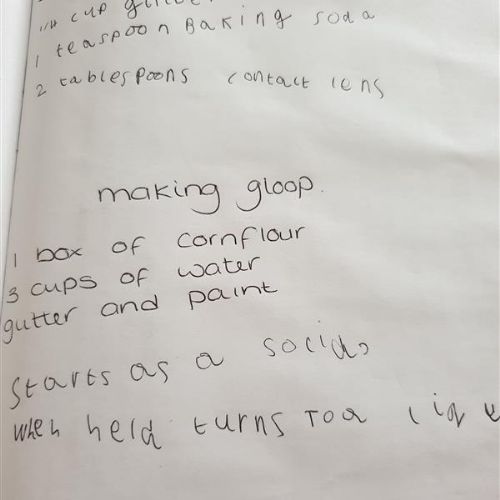 cup
1 teaspoon Baking soda
2 tablespoons contact lens
making gloop.
1 box of cornflour
3 cups of water
gutter and paint
Starts as a socid,
when held turns to a